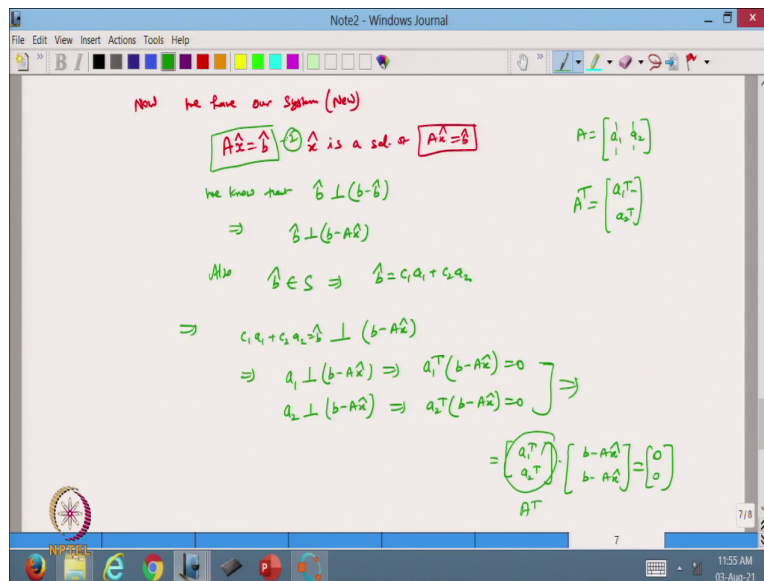 Note2 - Windows Journal
File Edit View Insert Actions Tools Help
Now we have our System (New)
Ax̂ = b̂ - ② x̂ is a sol. of Ax̂ = b̂
A = [a₁ a₂]
we know that b̂ ⊥ (b-b̂)
Aᵀ = [a₁ᵀ-
a₂ᵀ]
⇒ b̂ ⊥ (b-Ax̂)
Also b̂ ∈ S ⇒ b̂ = c₁a₁ + c₂a₂
⇒ c₁a₁ + c₂a₂ = b̂ ⊥ (b-Ax̂)
⇒ a₁ ⊥ (b-Ax̂) ⇒ a₁ᵀ(b-Ax̂) = 0
a₂ ⊥ (b-Ax̂) ⇒ a₂ᵀ(b-Ax̂) = 0 ] ⇒
= [a₁ᵀ a₂ᵀ] · [b-Ax̂ b-Ax̂] = [0 0]
Aᵀ
NPTEL
7/8
7
11:55 AM
03-Aug-21